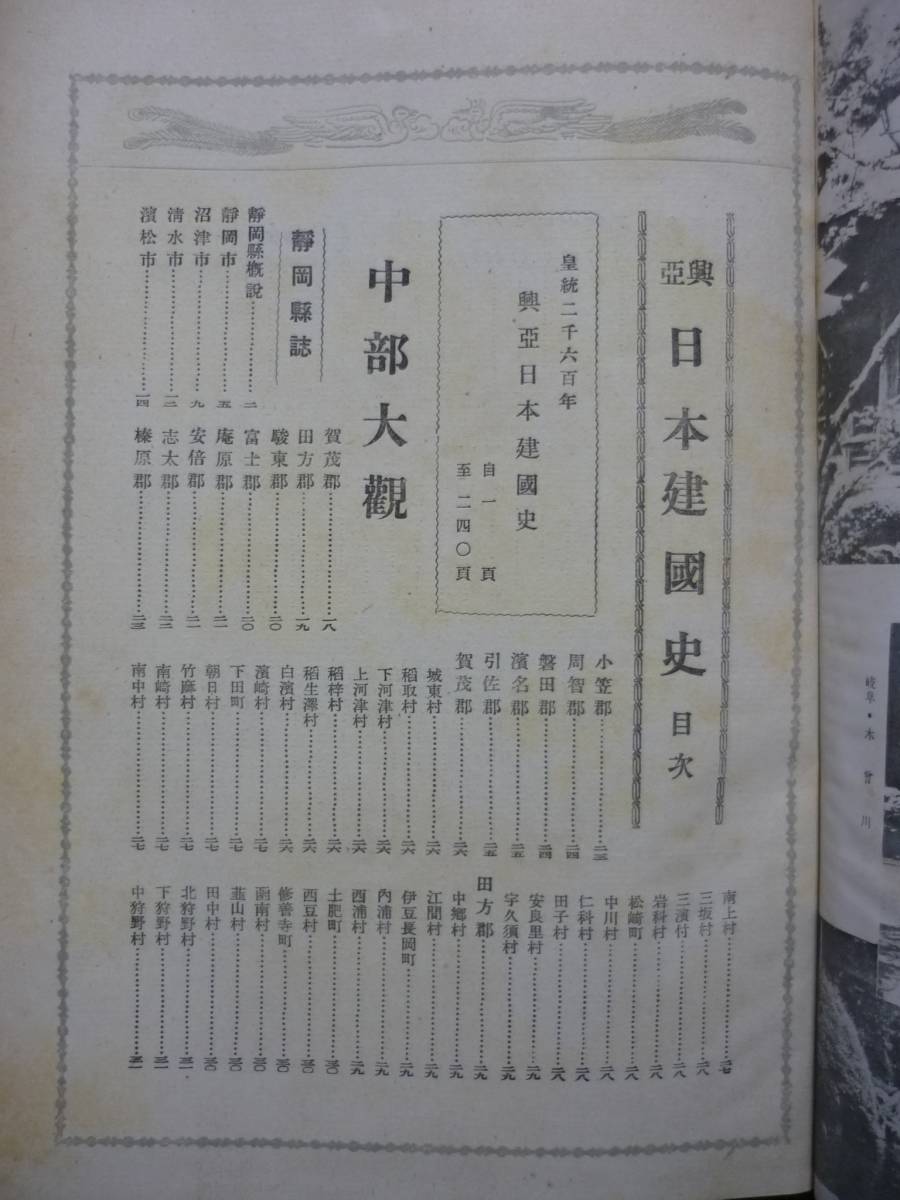 興亞 日本建國史 目次
皇統二千六百年
興亞日本建國史
自一頁
至二四〇頁
中部大觀
靜岡縣誌
靜岡縣概說……二
靜岡市……五
沼津市……九
淸水市……一二
濱松市……一四
賀茂郡……一八
田方郡……一九
駿東郡……二〇
富士郡……二〇
庵原郡……二一
安倍郡……二一
志太郡……二二
榛原郡……二三
小笠郡……二三
周智郡……二四
磐田郡……二四
濱名郡……二五
引佐郡……二五
賀茂郡……二六
城東村……二六
稻取村……二六
下河津村……二六
上河津村……二六
稻梓村……二六
稻生澤村……二六
白濱村……二六
濱崎村……二七
下田町……二七
朝日村……二七
竹麻村……二七
南崎村……二七
南中村……二七
南上村……二七
三坂村……二八
三濱村……二八
岩科村……二八
松崎町……二八
中川村……二八
仁科村……二八
田子村……二八
安良里村……二九
宇久須村……二九
田方郡……二九
中鄕村……二九
江間村……二九
伊豆長岡町……二九
內浦村……二九
西浦村……二九
土肥町……三〇
西豆村……三〇
修善寺町……三〇
函南村……三〇
韮山村……三〇
田中村……三〇
北狩野村……三一
下狩野村……三一
中狩野村……三一
岐阜・木曾川